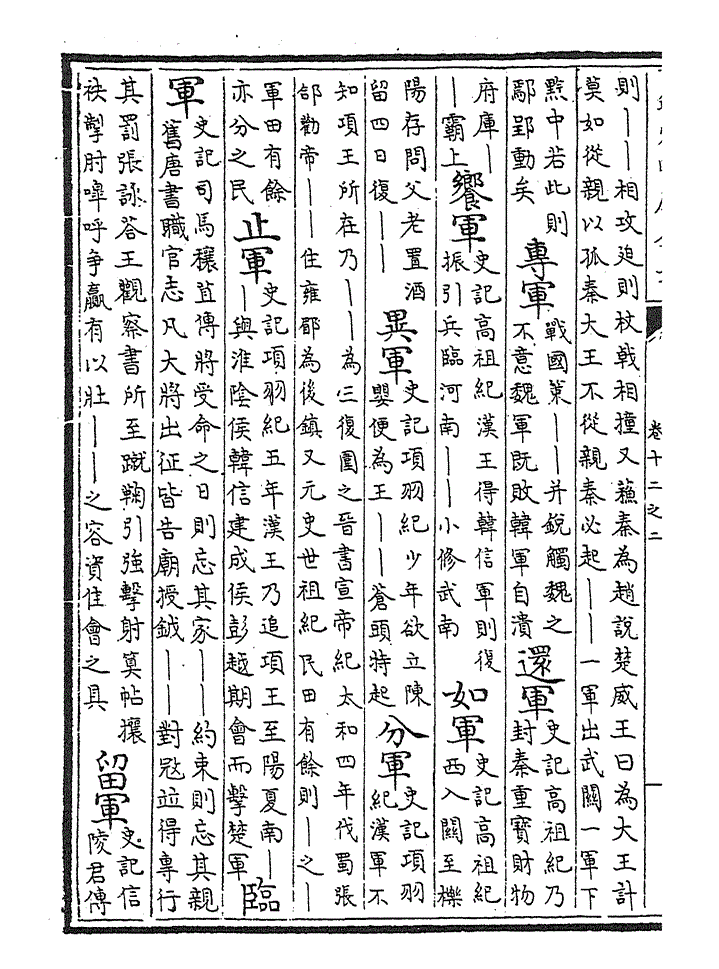 則——相攻迫則杖戟相撞又蘓秦為趙說楚威王曰為大王計
莫如從親以孤秦大王不從親秦必起——一軍出武關一軍下
黔中若此則
鄢郢動矣
專軍
戰國策——并銳觸魏之
不意魏軍既敗韓軍自潰
還軍
史記高祖紀乃
封秦重寶財物
府庫—
—霸上
饗軍
史記高祖紀漢王得韓信軍則復
振引兵臨河南——小修武南
如軍
史記高祖紀
西入關至櫟
陽存問父老置酒
留四日復——
異軍
史記項羽紀少年欲立陳
嬰便為王——蒼頭特起
分軍
史記項羽
紀漢軍不
知項王所在乃——為三復圍之晉書宣帝紀太和四年伐蜀張
郃勸帝——住雍郿為後鎮又元史世祖紀民田有餘則—之—
軍田有餘
亦分之民
止軍
史記項羽紀五年漢王乃追項王至陽夏南—
—與淮陰侯韓信建成侯彭越期會而擊楚軍
臨
軍
史記司馬穰苴傳將受命之日則忘其家——約束則忘其親
舊唐書職官志凡大將出征皆告廟授鉞——對冦並得專行
其罰張詠荅王觀察書所至蹴鞠引強擊射奠帖攘
袂掣肘嘷呼争贏有以壯——之容資住會之具
留軍
史記信
陵君傳
卷十二之二